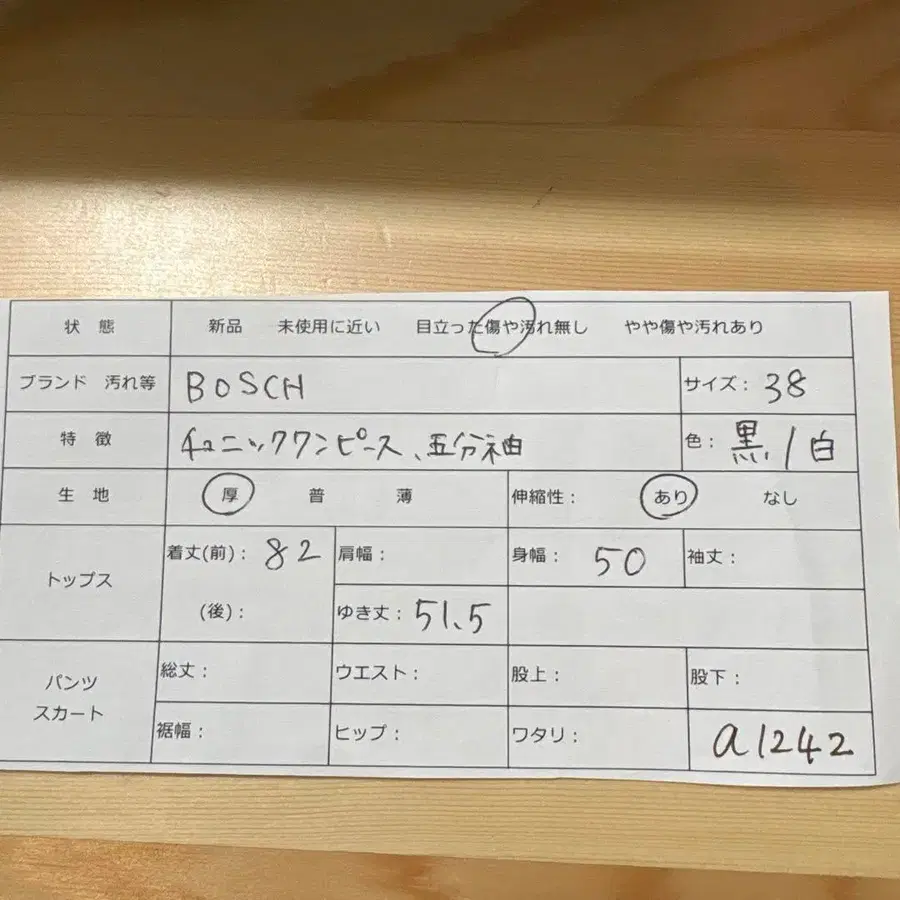 状 態 新品 未使用に近い 目立った傷や汚れ無し やや傷や汚れあり
ブランド 汚れ等 BOSCH サイズ: 38
特 徴 チュニックワンピース、五分袖 色: 黒/白
生 地 厚 普 薄 伸縮性: あり なし
トップス 着丈(前): 82 肩幅: 身幅: 50 袖丈:
(後): ゆき丈: 51.5
パンツ スカート 総丈: ウエスト: 股上: 股下:
裾幅: ヒップ: ワタリ: a1242